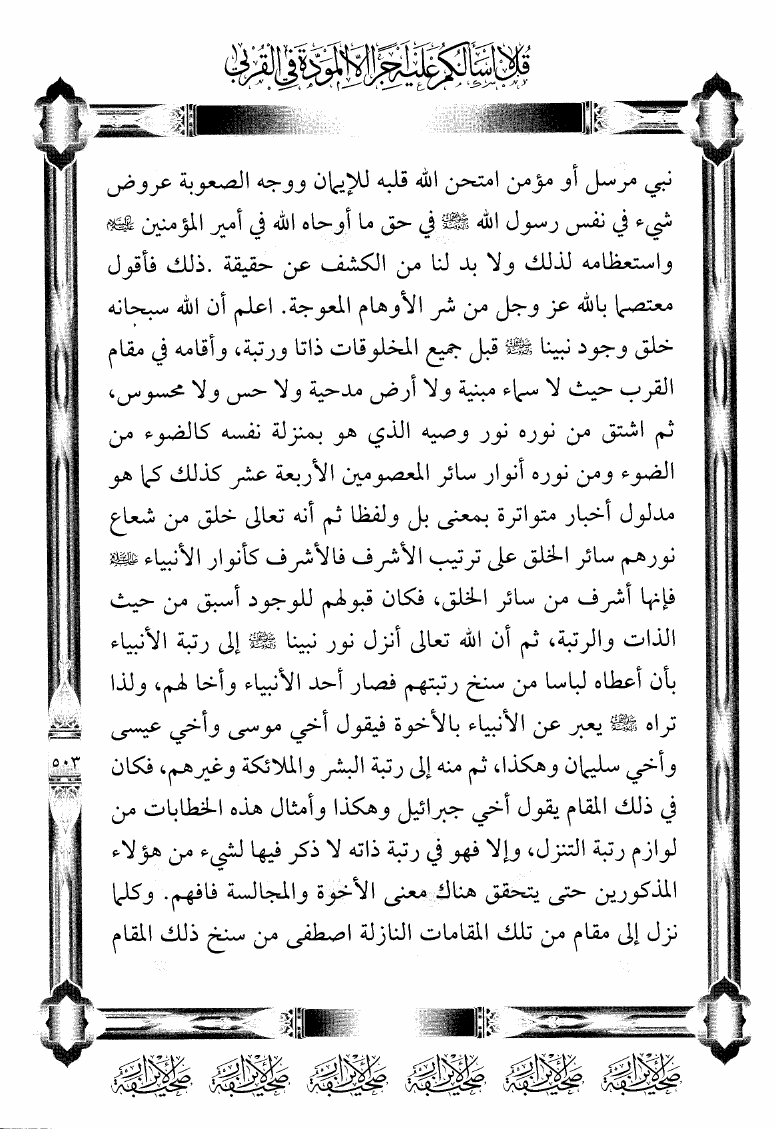 قل لا أسألكم عليه أجرا إلا المودة في القربى
نبي مرسل أو مؤمن امتحن الله قلبه للإيمان ووجه الصعوبة عروض
شيء في نفس رسول الله ﷺ في حق ما أوحاه الله في أمير المؤمنين عليه السلام
واستعظامه لذلك ولا بد لنا من الكشف عن حقيقة .ذلك فأقول
معتصما بالله عز وجل من شر الأوهام المعوجة. اعلم أن الله سبحانه
خلق وجود نبينا ﷺ قبل جميع المخلوقات ذاتا ورتبة، وأقامه في مقام
القرب حيث لا سماء مبنية ولا أرض مدحية ولا حس ولا محسوس،
ثم اشتق من نوره نور وصيه الذي هو بمنزلة نفسه كالضوء من
الضوء ومن نوره أنوار سائر المعصومين الأربعة عشر كذلك كما هو
مدلول أخبار متواترة بمعنى بل ولفظا ثم أنه تعالى خلق من شعاع
نورهم سائر الخلق على ترتيب الأشرف فالأشرف كأنوار الأنبياء عليه السلام
فإنها أشرف من سائر الخلق، فكان قبولهم للوجود أسبق من حيث
الذات والرتبة، ثم أن الله تعالى أنزل نور نبينا ﷺ إلى رتبة الأنبياء
بأن أعطاه لباسا من سنخ رتبتهم فصار أحد الأنبياء وأخا لهم، ولذا
تراه ﷺ يعبر عن الأنبياء بالأخوة فيقول أخي موسى وأخي عيسى
وأخي سليمان وهكذا، ثم منه إلى رتبة البشر والملائكة وغيرهم، فكان
في ذلك المقام يقول أخي جبرائيل وهكذا وأمثال هذه الخطابات من
لوازم رتبة التنزل، وإلا فهو في رتبة ذاته لا ذكر فيها لشيء من هؤلاء
المذكورين حتى يتحقق هناك معنى الأخوة والمجالسة فافهم. وكلما
نزل إلى مقام من تلك المقامات النازلة اصطفى من سنخ ذلك المقام
٥٠٣
صحيفة الأبرار صحيفة الأبرار صحيفة الأبرار صحيفة الأبرار صحيفة الأبرار صحيفة الأبرار